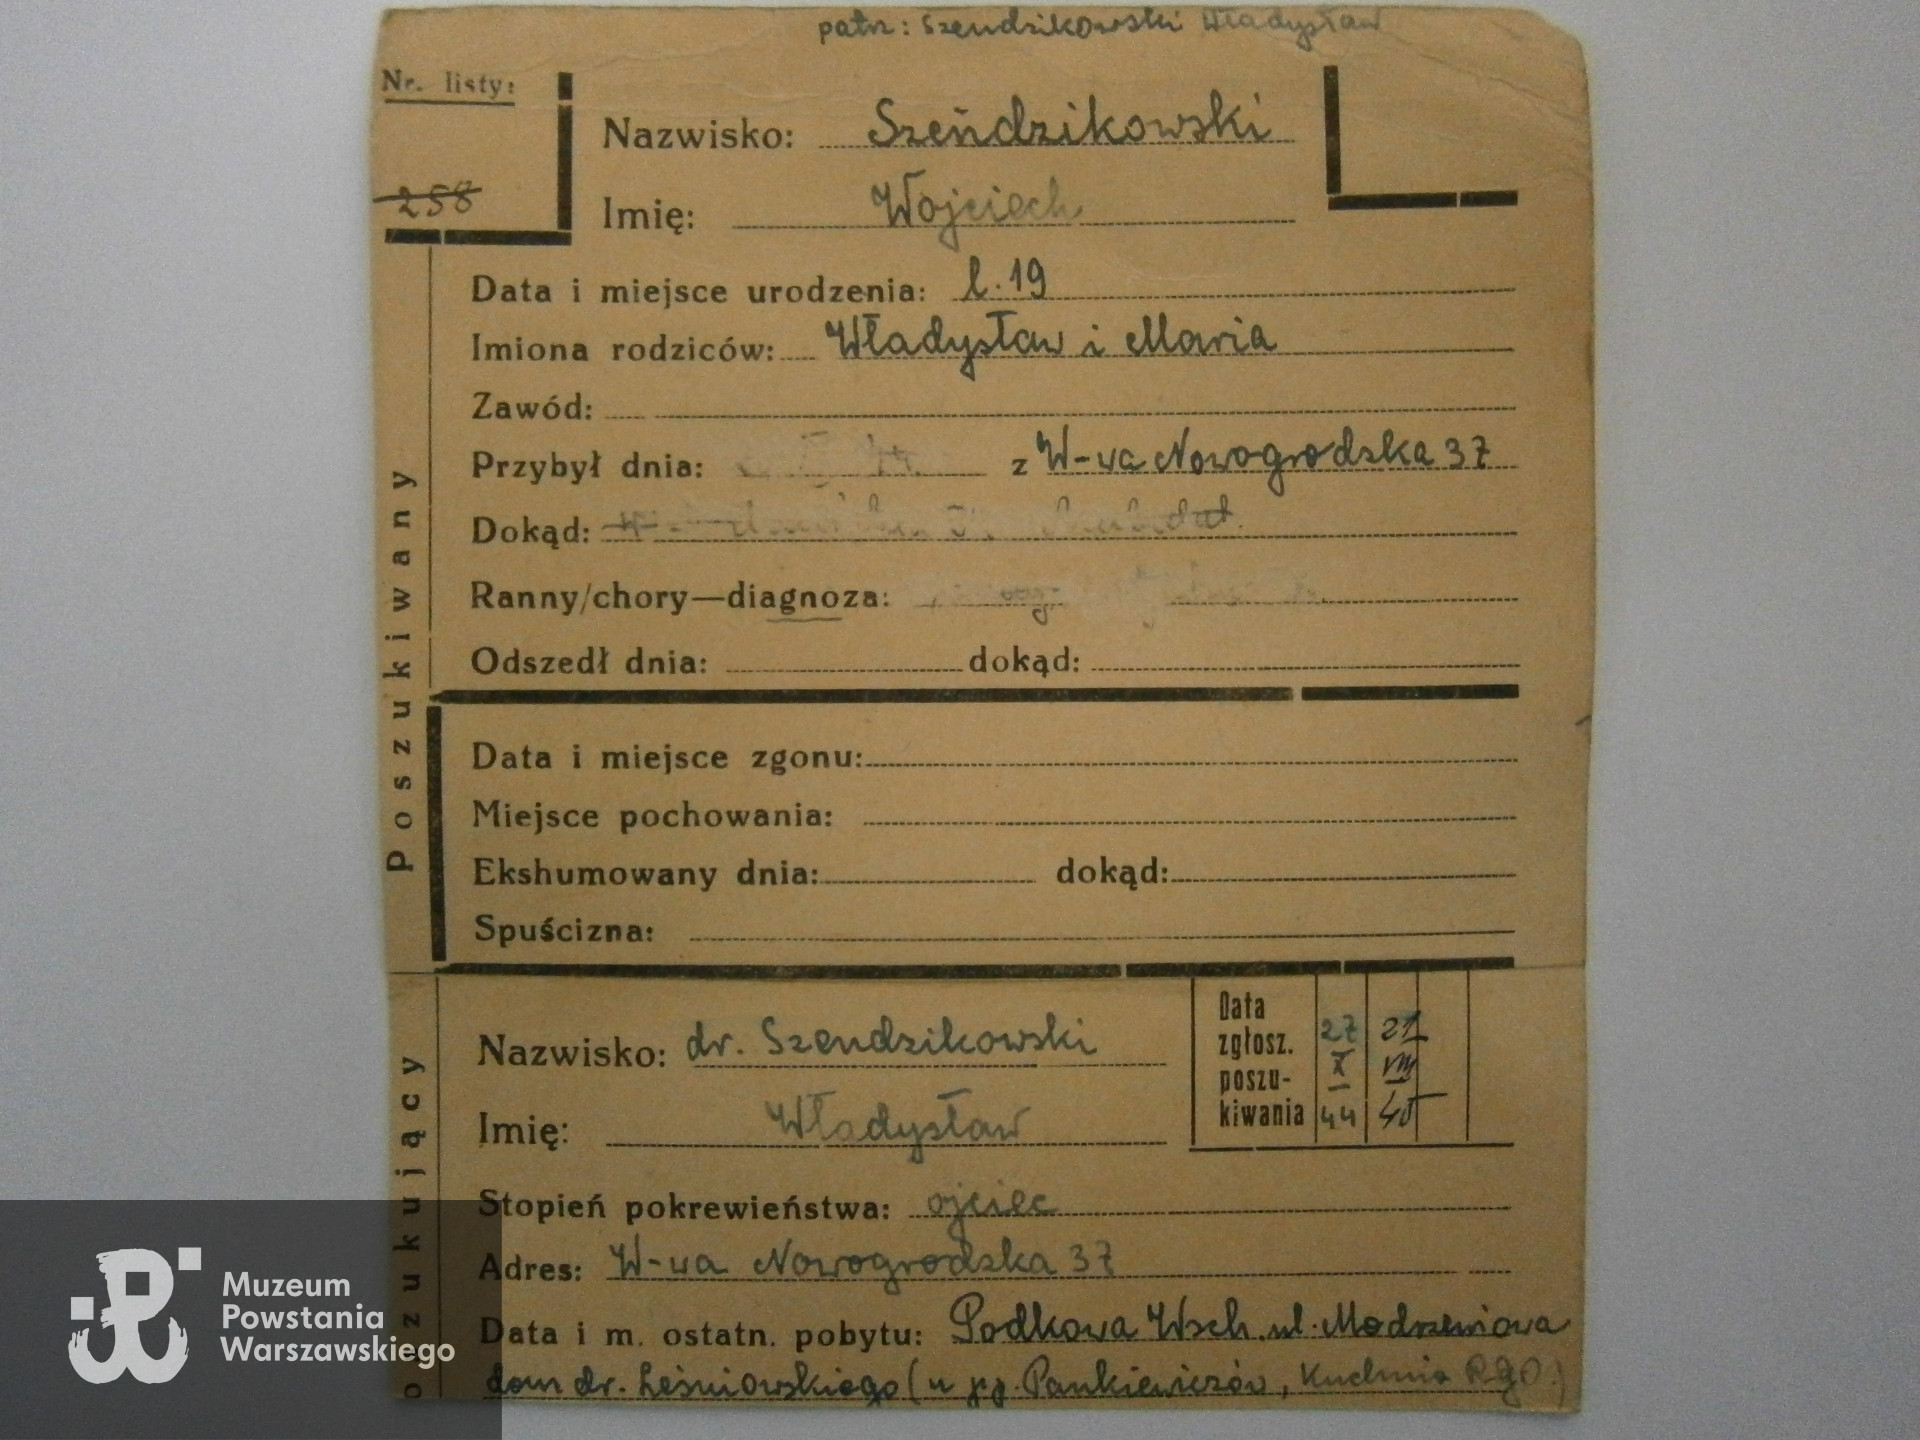 patrz: Szendzikowski Władysław
Nr. listy:
258
Nazwisko: Szeńdzikowski
Imię: Wojciech
Data i miejsce urodzenia: l. 19
Imiona rodziców: Władysław i Maria
Zawód:
Przybył dnia: z W-wa Nowogrodzka 37
Dokąd:
Ranny/chory—diagnoza:
Odszedł dnia: dokąd:
Poszukiwany
Data i miejsce zgonu:
Miejsce pochowania:
Ekshumowany dnia: dokąd:
Spuścizna:
Nazwisko: dr. Szendzikowski
Imię: Władysław
Data zgłosz. poszukiwania
27 X 44
21 VIII 45
Stopień pokrewieństwa: ojciec
Adres: W-wa Nowogrodzka 37
Data i m. ostatn. pobytu: Podkowa Wsch. ul. Modrzewiowa
dom dr. Leśniowskiego (u pp. Pankiewiczów, Kuchnia RgO.)
ozukujący
Muzeum
Powstania
Warszawskiego